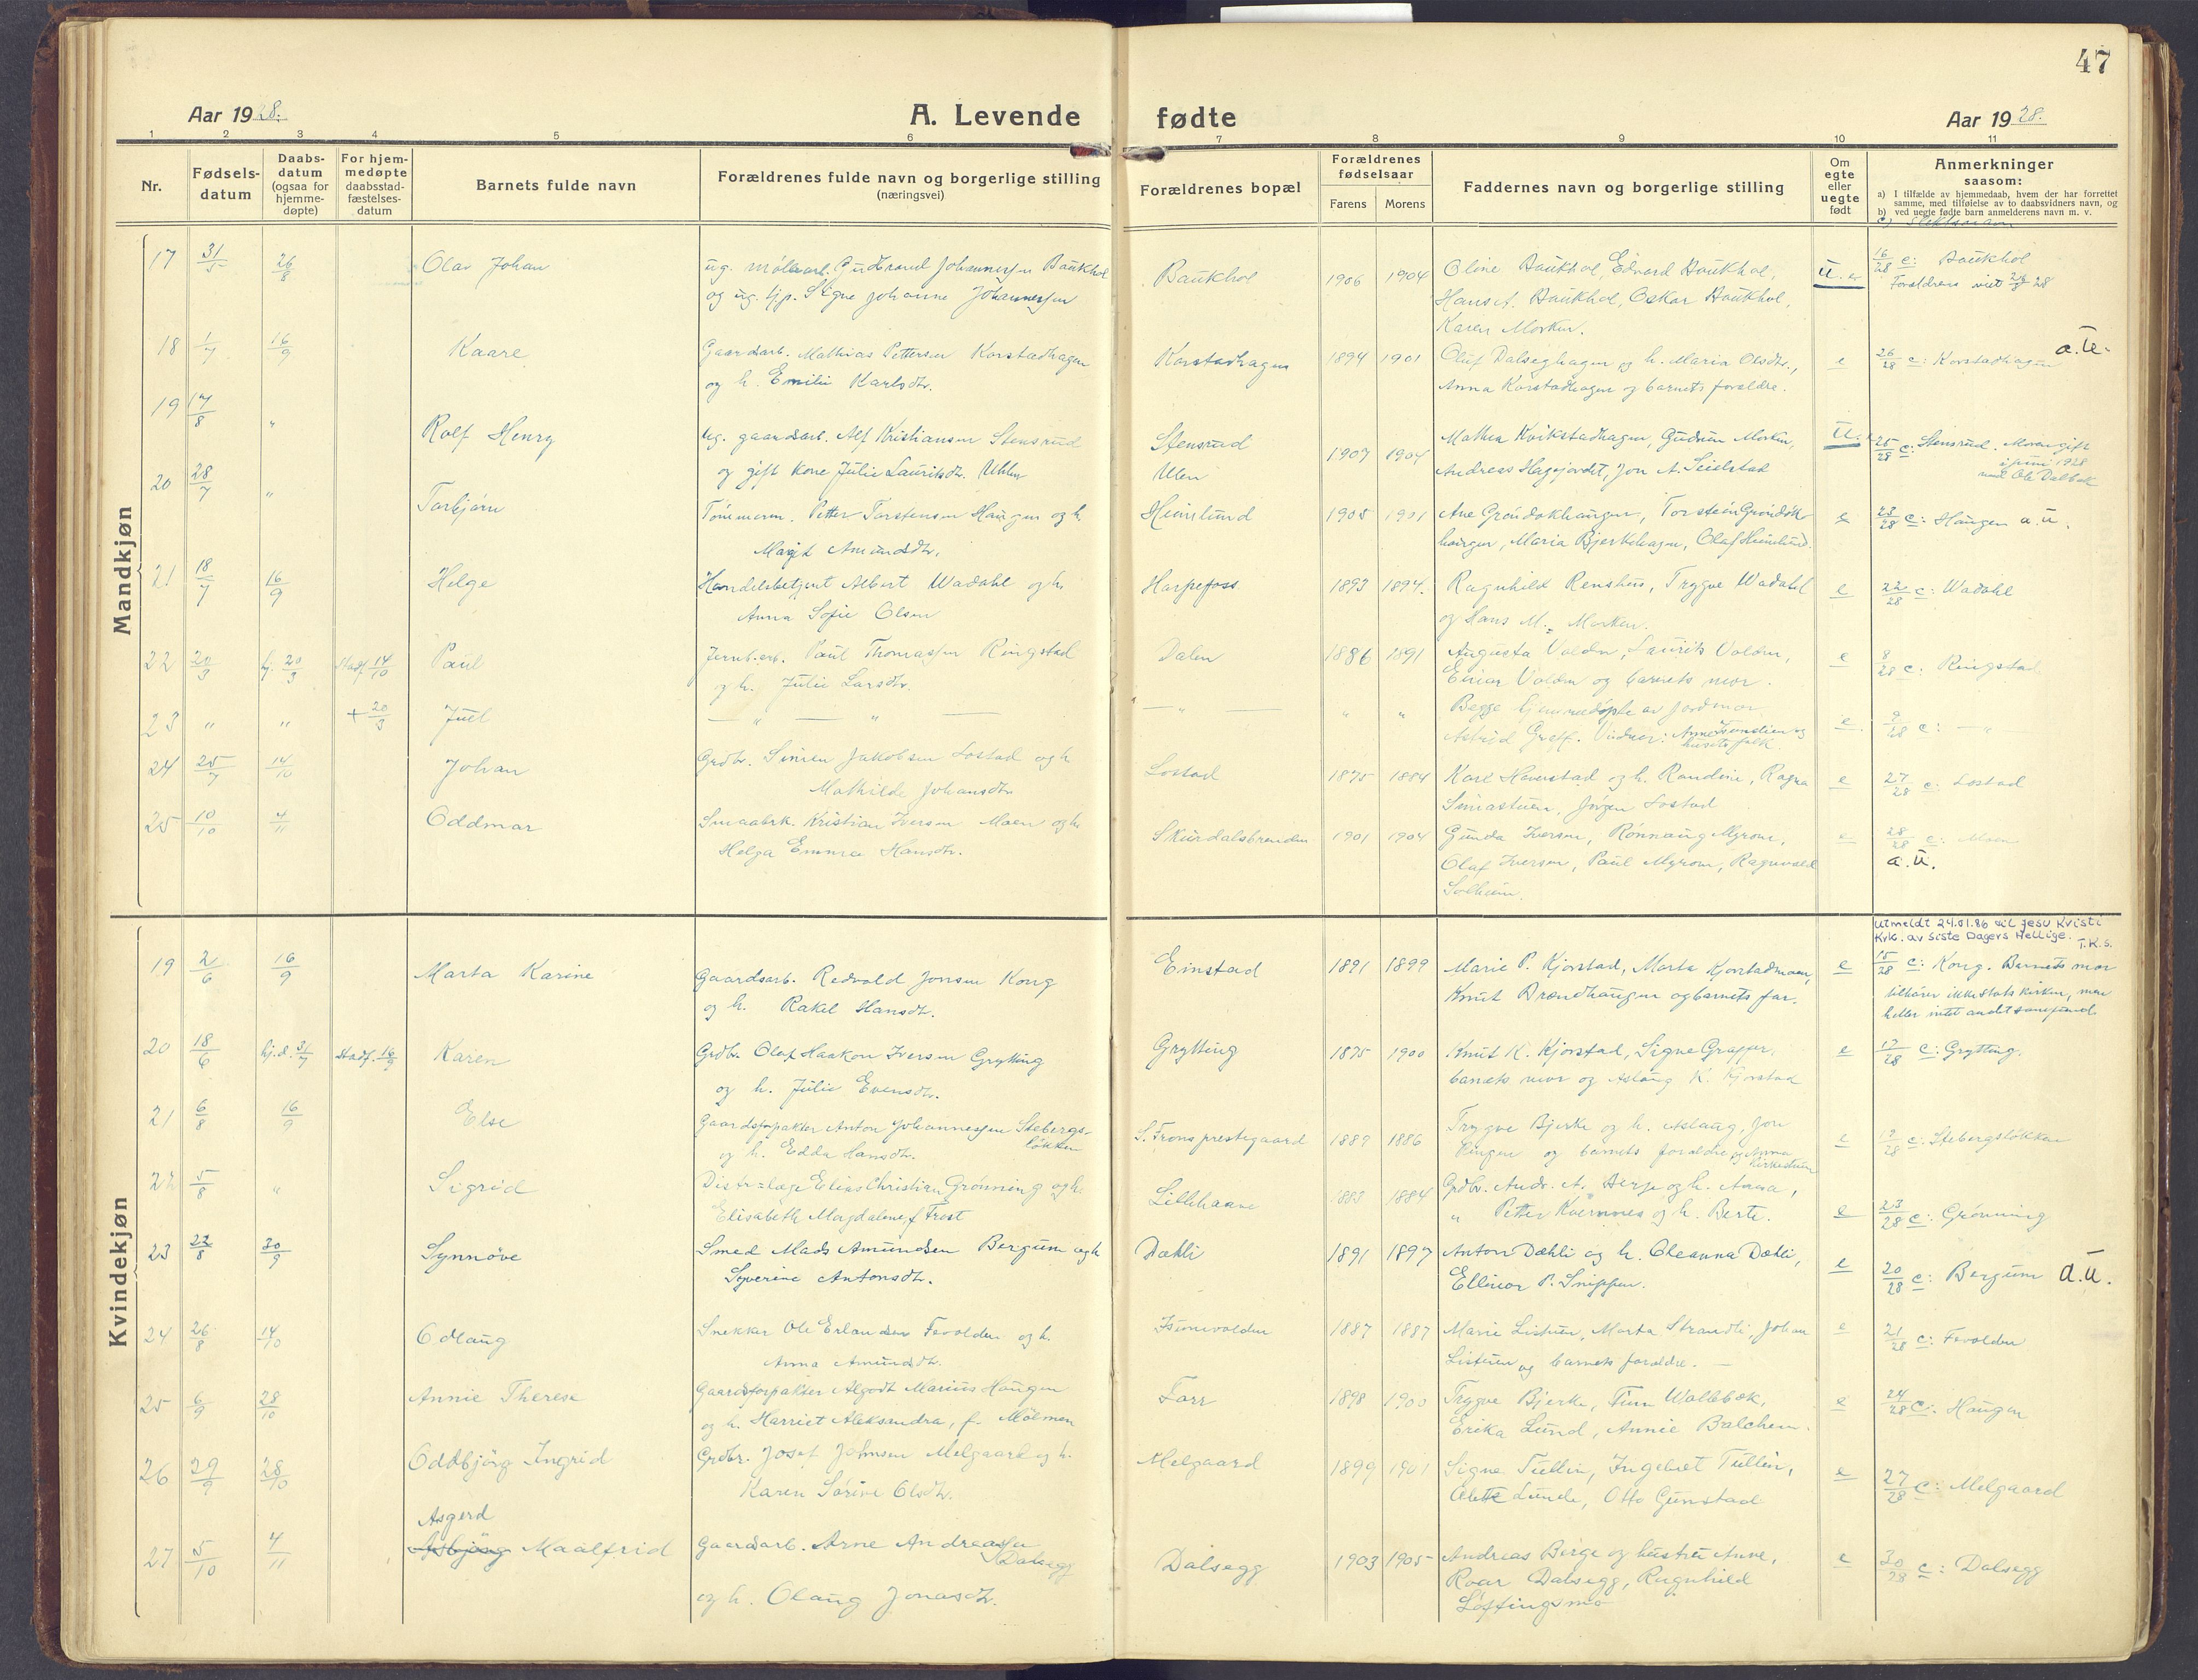 47
Aar 1928.
A. Levende fødte
Aar 1928.
1 2 3 4 5 6 7 8 9 10 11
Nr.
Fødsels-
datum
Daabs-
datum
(ogsaa for
hjemme-
døpte)
For hjem-
medøpte
daabsstad-
fæstelses-
datum
Barnets fulde navn
Forældrenes fulde navn og borgerlige stilling
(næringsvei)
Forældrenes bopæl
Forældrenes
fødselsaar
Farens Morens
Faddernes navn og borgerlige stilling
Om
egte
eller
uegte
født
Anmerkninger
saasom:
a) I tilfælde av hjemmedaab, hvem der har forrettet
samme, med tilføielse av to daabsvidners navn, og
b) ved uegte fødte barn anmelderens navn m. v.
c) Slektsnavn
Mandkjøn
17 31/5 26/8 Olav Johan ug. Gudbrand Johannessen Baukhol Baukhol 1906 1904 Oline Baukhol, Edvard Baukhol, u. e 16/28 c: Baukhol
og ug. tjp. Signe Johanne Johannessen Hans A. Baukhol, Oskar Baukhol, Foreldrene viet 26/8 28
Karen Morken.
18 1/7 16/9 Kaare Gaardsarb. Mathias Pettersen Korstadhagen Korstadhagen 1894 1901 Oluf Dalseghagen og h. Maria Olsdtr., e 26/28 c: Korstadhagen a.u.
og h. Emilie Karlsdtr. Anna Korstadhagen og barnets foreldre.
19 17/8 " Rolf Henry Ug. gaardsarb. Alf Kristiansen Stensrud Stensrud 1907 1904 Mathea Kvikstadhagen, Gudrun Morken, u. 25/28 c: Stensrud. Moren gift
og gift kone Julie Lauritsdtr. Uhlen Ulen Andreas Hagejordet, Jon A. Seielstad i juni 1928
med Ole Dalbak
20 28/7 " Torbjørn Tømmerm. Petter Torstensen Haugen og h. Heimlund 1905 1901 Ane Grøndokhaugen, Torstein Grøndok- e 23/28 c: Haugen a.u.
Margit Amundsdtr. haugen, Maria Bjerkehagen, Olaf Heimlund.
21 18/7 16/9 Helge Handelsbetjent Albert Wadahl og h. Harpefoss 1893 1894. Ragnhild Renshus, Trygve Wadahl e 22/28 c: Wadahl
Anna Sofie Olsen og Hans M. Morken.
22 20/3 hj. 20/3 stadf. 14/10 Paul Jernb.arb. Paul Thomassen Ringstad Dalen 1886 1891 Augusta Volden, Laurits Volden, e 8/28 c: Ringstad
og h. Julie Larsdtr. Einar Volden og barnets mor.
23 " " + 20/3 Juel — " — " — — " — " " Begge hjemmedøpte av jordmor e 9/28 c: — "
Astrid Greff. Vidner: Anne og
husets folk.
24 25/7 14/10 Johan Grdbr. Simen Jakobsen Lostad og h. Lostad 1875 1884 Karl Haverstad og h. Randine, Ragna e 27/28 c: Lostad
Mathilde Johansdtr. Jørgen Lostad
25 10/10 4/11 Oddmar Smaabrk. Kristian Iversen Moen og h. Skurdalsbrenden 1901 1904 Gunda Iversen, Rønnaug Myrom, e 28/28 c: Moen
Helga Emma Hansdtr. Olaf Iversen, Paul Myrom, Ragnvald a.u.
Solheim.
Kvindekjøn
Utmeldt 24.01.86 til Jesu Kristi
Krk. av Siste Dagers Hellige. T.K.S.
19 2/6 16/9 Marta Karine Gaardsarb. Redvald Jonsen Kong Einstad 1891 1899 Marie P. Kjorstad, Marta Kjorstadmoen, e 15/28 c: Kong. Barnets mor
og h. Rakel Hansdtr. Knut Brændhaugen og barnets far. tilhører ikke statskirken, men
heller intet andet samfund.
20 18/6 hj.d. 31/7 stadf. 16/9 Karen Grdbr. Olaf Haakon Iversen Grytting Grytting 1875 1900 Knut K. Kjorstad, Signe e 17/28 c: Grytting.
og h. Julie Evensdtr. barnets mor og Aslaug K. Kjorstad
21 6/8 16/9 Else Gaardsforpakter Anton Johannessen Stebergs- S. Frons prestegaard 1889 1886 Trygve Bjerke og h. Aslaug, Jon e 19/28 c: Stebergsløkken
løkken
og h. Edda Hansdtr. Ringen og barnets foreldre og Anna
Kirkestuen
22 5/8 " Sigrid Distr.læge Elias Christian Grønning og h. Lillehaave 1883 1884 Grdbr. Andr. A. Berge og h. Anna, e 23/28 c: Grønning
Elisabeth Magdalene f. Trost " Petter Kvernnes og h. Berte.
23 22/8 30/9 Synnøve Smed Mads Amundsen Bergum og h. Dæhli 1891 1897 Anton Dæhli og h. Oleanna Dæhli, e 20/28 c: Bergum a.u.
Syverine Antonsdtr. Ellinor P. Snippen.
24 26/8 14/10 Odlaug Snekker Ole Erlandsen Fevolden og h. 1887 1887 Marie Listuen, Marta Strandli, Johan e 21/28 c: Fevolden
Anna Amundsdtr. Listuen og barnets foreldre. —
25 6/9 28/10 Annie Therese Gaardsforpakter Algodt Marius Haugen Forr 1898 1900 Trygve Bjerke, Finn Wallbek, e 24/28 c: Haugen
og h. Harriet Aleksandra, f. Mølmen Erika Lund, Annie Balchen.
26 29/9 28/10 Oddbjørg Ingrid Grdbr. Josef Johnsen Melgaard og h. Melgaard 1899 1901 Signe Tullin, Ingebret Tullin, e 27/28 c: Melgaard
Karen Sørine Olsdtr. Alette Lunde, Otto Gunstad
Asgerd
27 5/10 4/11 Asbjørg Maalfrid Gaardsarb. Arne Andreassen Dalsegg 1903 1905 Andreas Berge og hustru Anne, e 30/28 c: Dalsegg
Dalsegg Roar Dalsegg, Ragnhild
og h. Olaug Jonasdtr. Løftingsmo